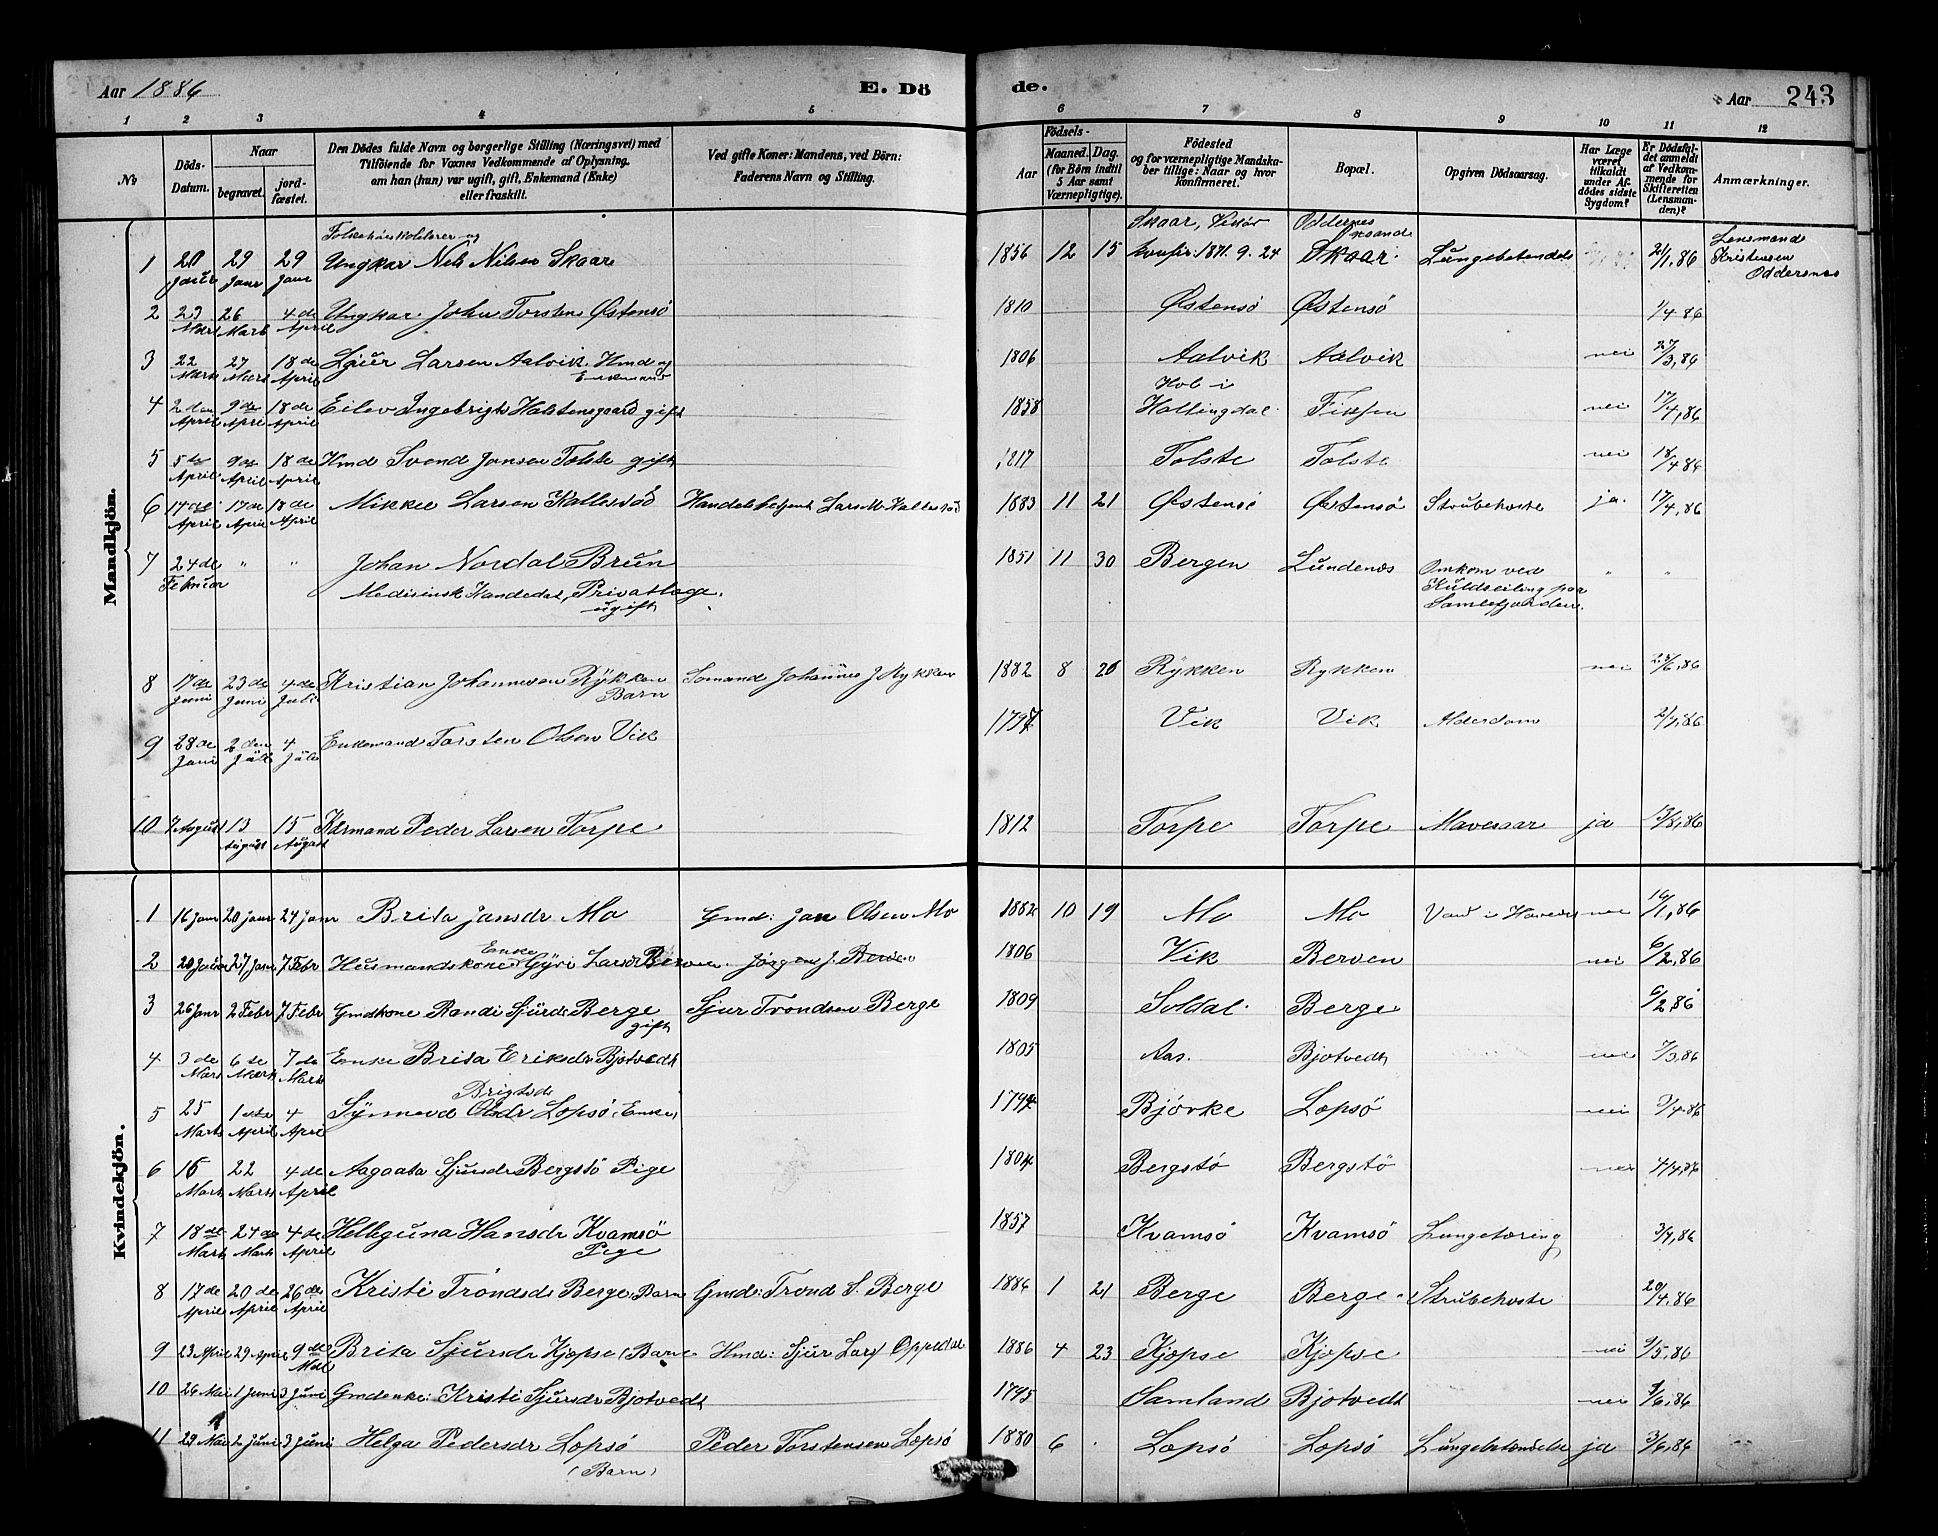 Aar 1886 E. Dö de. Aar 243
1 2 3 4 5 6 7 8 9 10 11 12
№
Döds-Datum.
Naar
begravet.
jord-fæstet.
Den Dödes fulde Navn og borgerlige Stilling (Næringsvei) med
Tilföiende for Voxnes Vedkommende af Oplysning,
om han (hun) var ugift, gift, Enkemand (Enke)
eller fraskilt.
Ved gifte Koner: Mandens, ved Börn:
Faderens Navn og Stilling.
Födsels-
Aar
Maaned. Dag.
(for Börn indtil
5 Aar samt
Værnepligtige).
Födested
og for værnepligtige Mandska-
ber tillige: Naar og hvor
konfirmeret.
Bopæl.
Opgiven Dödsaarsag.
Har Læge
været
tilkaldt
under Af-
dödes sidste
Sygdom?
Er Dödsfal-
det anmeldt
af Vedkom-
mende for
Skifteretten
(Lensman-
den)?
Anmærkninger.
Mandkjön.
1 20 Januar 29 Janr 29 Janr Ungkar Nels Nilsen Skaar 1856 12 15 Skaar, konfir. 1871. 9. 24 Oddernes Skaar Lungebetendels 21/1, 86 Lensmand Kristensen Oddersnes
2 23 Marts 26 Marts 4 de April Ungkar John Torstens Østensö 1810 Østensö Østensö 1/4 86
3 22 Marts 27 Marts 18 de April Sjur Larsen Aalvik, Hmd og Enkemand 1806 Aalvik Aalvik nei 27/3, 86
4 2 den April 9 de April 18 de April Eilev Ingebrigts Halstensgaard gift 1858 Hol i Hallingdal Fixsen nei 17/4, 86
5 5 te April 9 de April 18 de April Hmd Svend Jonsen Tolste gift 1817 Tolste Tolste nei 18/4 86
6 14 de April 17 de April 18 de April Mikkel Larsen Kallesöd Handelsbetjent Lars M. Kallesöd 1883 11 21 Østensö Østensö Strubehoste ja. 17/4, 86
7 24 de Februar " " Johan Nordal Brun 1851 11 30 Bergen Lundenes Omkom ved " "
Medisinsk Kandedat, Privatlæge. Kuldseiling paa
ugift Samlefjorden.
8 17 de Juni 23 de Juni 4 de Juli Kristian Johannesen Rykken Barn Somand Johannes J Rykken 1882 8 26 Rykken Rykken nei 23/6, 86
9 28 de Juni 2 den Juli 4 Juli Enkemand Torsten Olsen Vik 1797 Vik Vik Alderdom 2/7, 86
10 7 August 13 August 15 August Kaarmand Peder Larsen Torpe 1812 Torpe Torpe Mavesaar ja 13/8, 86
Kvindekjön.
1 16 Janr 20 Janr 24 Janr Brita Jansdr Mo Gmd: Jan Olsen Mo 1882 10 19 Mo Mo Vand i Hovedet nei 16/1, 86
2 20 Januar 27 Janr 7 Febr Husmandskone Enke Gyri Larsdr Berven Jörgen J. Berven 1806 Vik Berven nei 6/2, 86
3 26 Janr 2 Febr 7 Febr Gmdkone Randi Sjurds Berge gift Sjur Trondsen Berge 1809 Soldal Berge 6/2, 86
4 3 de Marts 6 te Marts 7 de Marts Enke Brita Eriksdr Bjotvedt 1805 Aas. Bjotvedt nei 7/3, 86
5 25 Marts 1 ste April 4 April Synneva Brigtsdr Olsdr Lopsö, Enke, 1794 Bjórke Lopsö nei 3/4, 86
6 16 Marts 22 Marts 4 de April Aagaata Sjursdr Bergstö Pige 1804 Bergstö Bergstö nei 4/4, 86
7 18 de Marts 24 de Marts 4 de April Hellguna Hansdr Kvamsö Pige 1857 Kvamsö Kvamsö Lungetæring 3/4, 86
8 17 de April 20 de April 26 de April Kristi Tröndsdr Berge, Barn Gmd: Trond S. Berge 1886 1 21 Berge Berge Strubehoste 20/4, 86
9 23 April 29 April 9 de Mai Brita Sjursdr Kjopse (Barn Hmd: Sjur Lars Oppedal 1886 4 23 Kjopse Kjopse nei 9/5, 86
10 26 Mai 1 Juni 3 Juni Gmdenke: Kristi Sjursdr Bjotvedt 1795 Samland Bjotvedt nei 1/6, 86
11 29 Mai 2 Juni 3 Juni Helga Pedersdr Lopsö Peder Torstensen Lopsö 1880 6 Lopsö Lopsö Lungebetendelse ja 3/6, 86
(Barn)